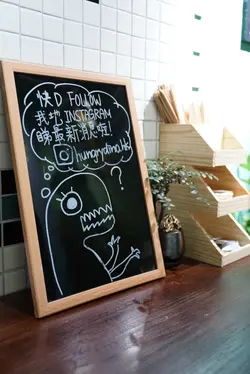 快D FOLLOW
我地INSTAGRAM
睇最新消息啦!
hungrydino.hk
?